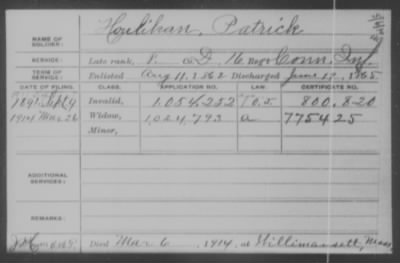 Houlihan, Patrick
NAME OF SOLDIER:
SERVICE: Late rank, P. Co D, 16 Reg't Conn. Inf.
TERM OF SERVICE: Enlisted Aug 11, 1862 Discharged June 1865
DATE OF FILING. CLASS. APPLICATION NO. LAW. CERTIFICATE NO.
1891 Sept 4 Invalid, 1,054,252 800,820
1914 Mar 26 Widow, 1,024,793 a 775425
Minor,
ADDITIONAL SERVICES:
REMARKS:
Died Mar 6, 1914, at Willimansett, Mass